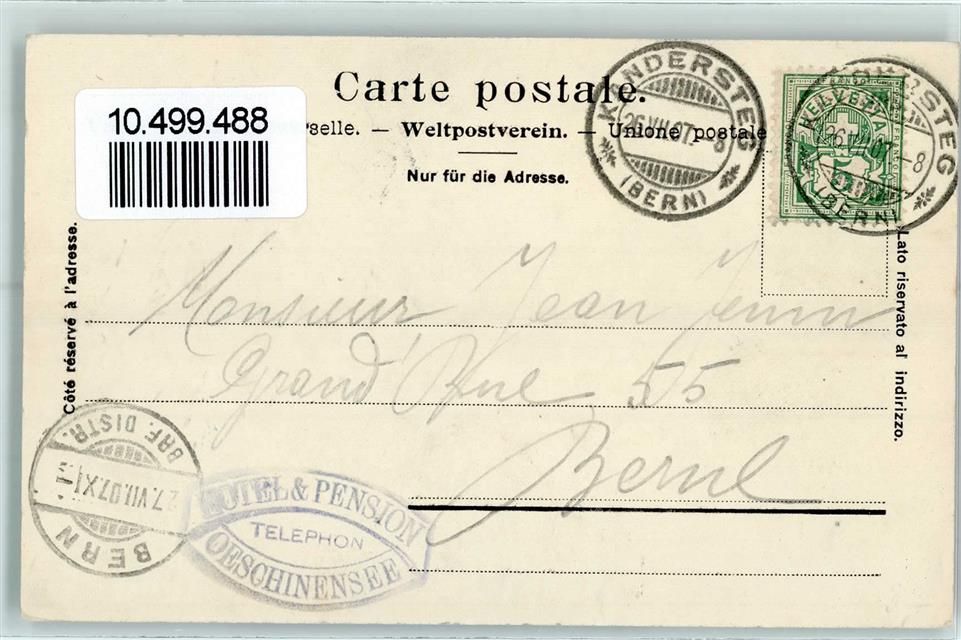 Carte postale.
10.499.488
selle. — Weltpostverein. — Unione postale
Nur für die Adresse.
KANDERSTEG
26.VII.07.–8
(BERN)
FRANCO
HELVETIA
KANDERSTEG
26.VII.07.–8
(BERN)
Côté réservé à l'adresse.
Lato riservato al indirizzo.
Monsieur Jean Jenni
Grand' Rue 55
Berne
BERN
27.VII.07.XI
BRF. DISTR.
HOTEL & PENSION
TELEPHON
OESCHINENSEE